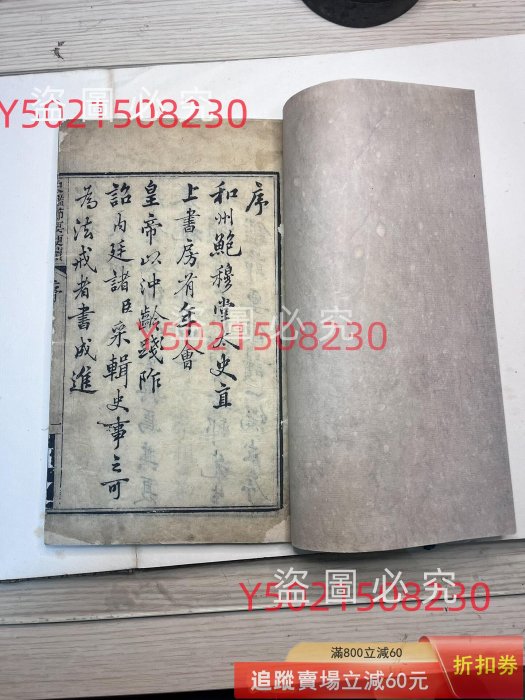 盜圖必究
Y5021508230
序
和州鮑穆堂太史直
上書房有年會
皇帝以沖齡踐阼
詔內廷諸臣采輯史事之可
為法戒者書成進
盜圖必究
Y5021508230
盜圖必究
Y5021508230
滿800立減60
追蹤賣場立減60元
折扣券